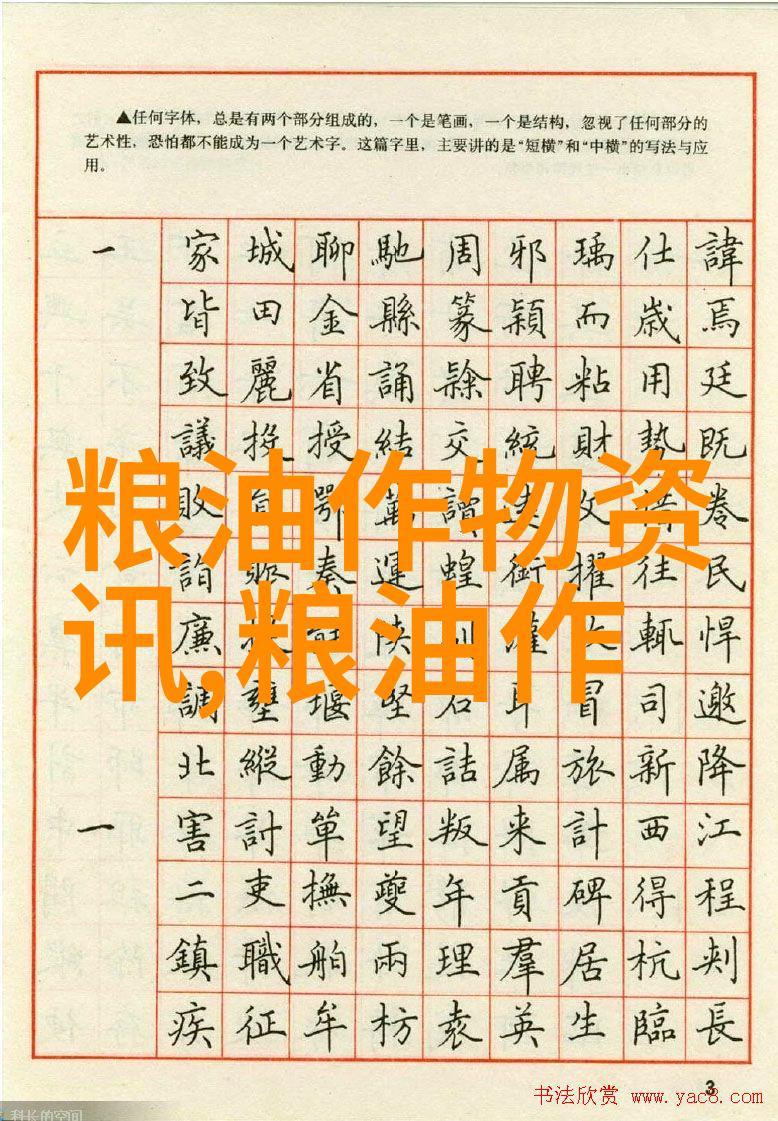 ▲任何字体，总是有两个部分组成的，一个是笔画，一个是结构，忽视了任何部分的
艺术性，恐怕都不能成为一个艺术字。这篇字里，主要讲的是“短横”和“中横”的写法与应
用。
一 家 城 聊 馳 周 邪 瑀 仕 諱
皆 田 金 縣 篆 穎 而 歲 焉
致 麗 省 誦 聘 粘 用 廷
議 投 授 結 交 統 財 勢 既
敗 鄂 萬 謂 卷
粮油作物资
詣 奏 運 蝗 銜 擢 往 民
讯,粮油作
廉 陝 輒 悍
調 壅 堰 堅 石 耳 冒 司 邀
北 縱 動 餘 詰 属 旅 新 降
一 害 討 單 望 叛 来 計 西 江
二 吏 撫 夔 年 貢 碑 得 程
鎮 職 舶 兩 理 羣 居 杭 刺
疾 征 牟 枋 袁 英 生 臨 長
3
书法欣赏 www.yac8.com
科长的空间